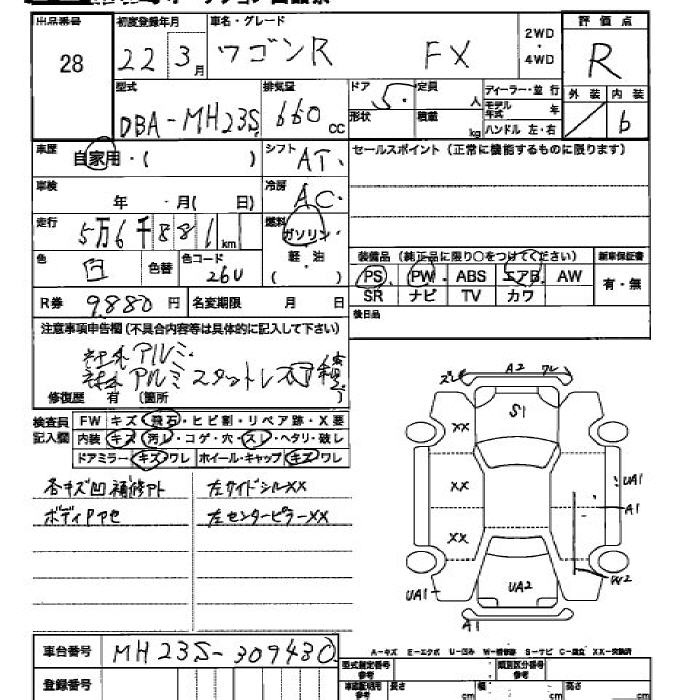 出品番号 初度登録年月 車名・グレード 2WD・4WD 評価点
28 22 3月 ワゴンR FX R
型式 排気量 ドア 定員 人 ディーラー・並行 外装 内装
DBA-MH23S 660cc 5 形状 積載 kg モデル年式 年 ハンドル 左・右 b
車歴 自家用・( ) シフト AT セールスポイント(正常に機能するものに限ります)
車検 年・月( 日) 冷房 AC
走行 5万6千881km 燃料 ガソリン・軽・油 ( )
色 白 色替 色コード 26U 装備品(純正品に限り○をつけてください) 新車保証書
PS PW ABS エアB AW 有・無
SR ナビ TV カワ
R券 9.880円 名変期限 月 日 後日品
注意事項申告欄(不具合内容等は具体的に記入して下さい)
社外アルミ
社外アルミスタットレス
修復歴 有 (箇所 )
検査員記入欄 FW キズ・飛石・ヒビ割・リペア跡・X要
内装 キズ・汚レ・コゲ・穴・スレ・ヘタリ・破レ
ドアミラー キズ ワレ ホイール・キャップ キズ ワレ
各キズ凹補修アト 左サイドシルXX
ボディPアセ 左センターピラーXX
ズレ A2 ワレ
S1
XX
XX
XX
UA1
A1
W2
UA1
UA2
A1
車台番号 MH23S-309430
A-キズ E-エクボ U-凹み W-補修跡 S-サビ C-腐食 XX-交換済
登録番号 型式指定番号 参考 類別区分番号 参考
車庫証明用 参考 長さ cm 幅 cm 高さ cm